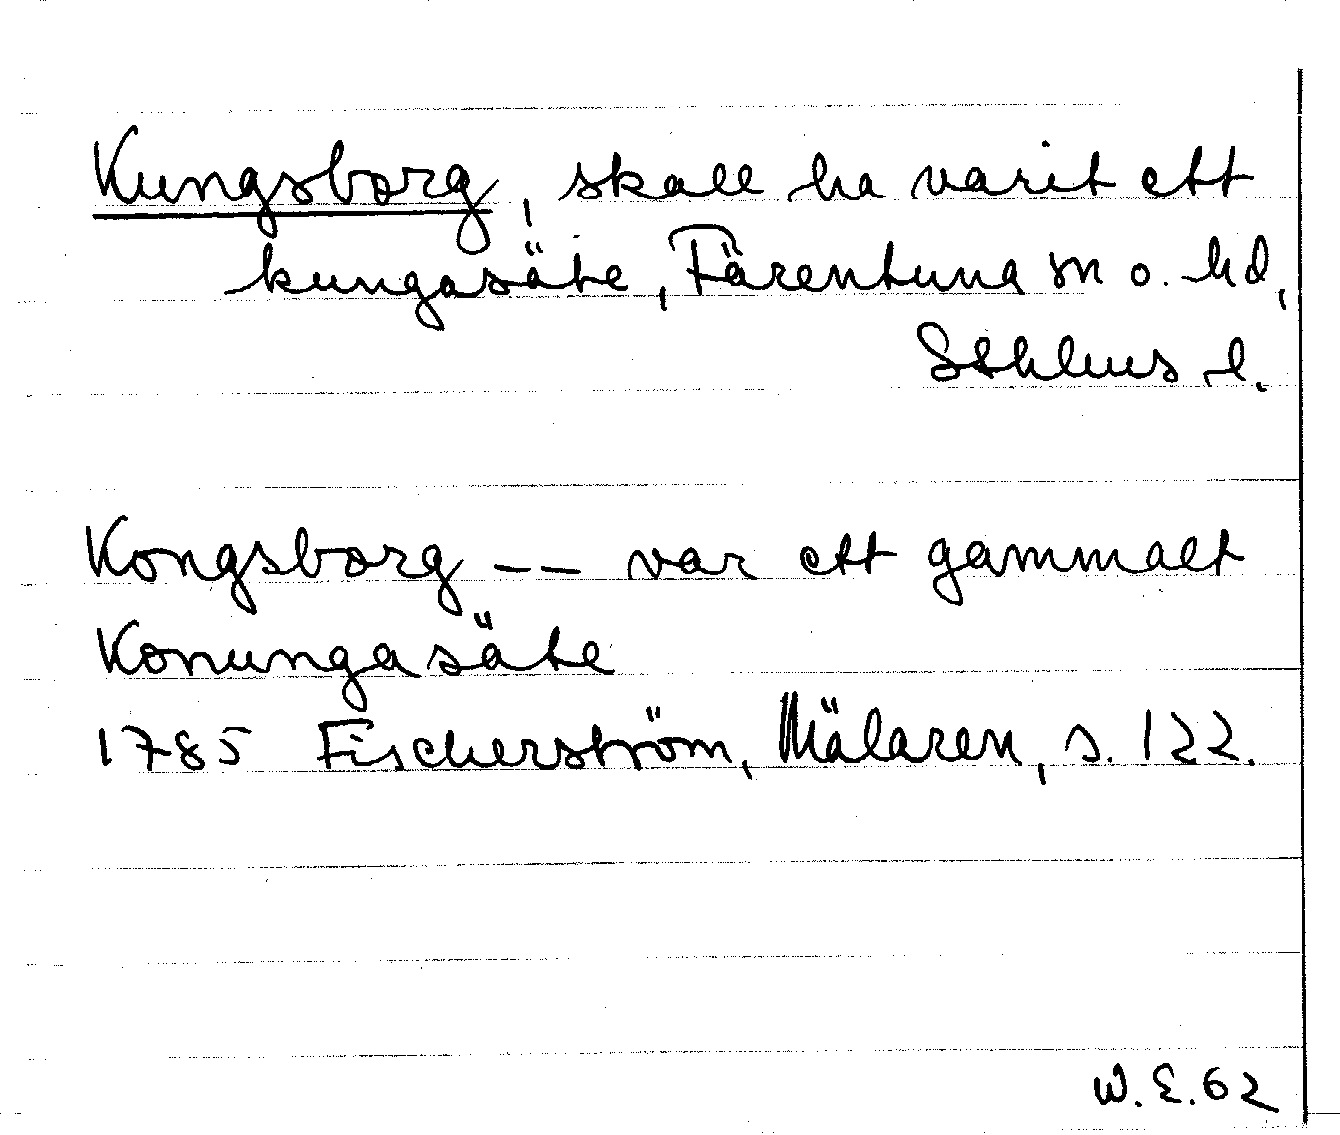 Kungsborg, skall ha varit ett
kungasäte, Färentuna sn o. hd,
Sthlms l.
Kongsborg -- var ett gammalt
Konungasäte
1785 Fischerström, Mälaren, s. 122.
W. E. 62